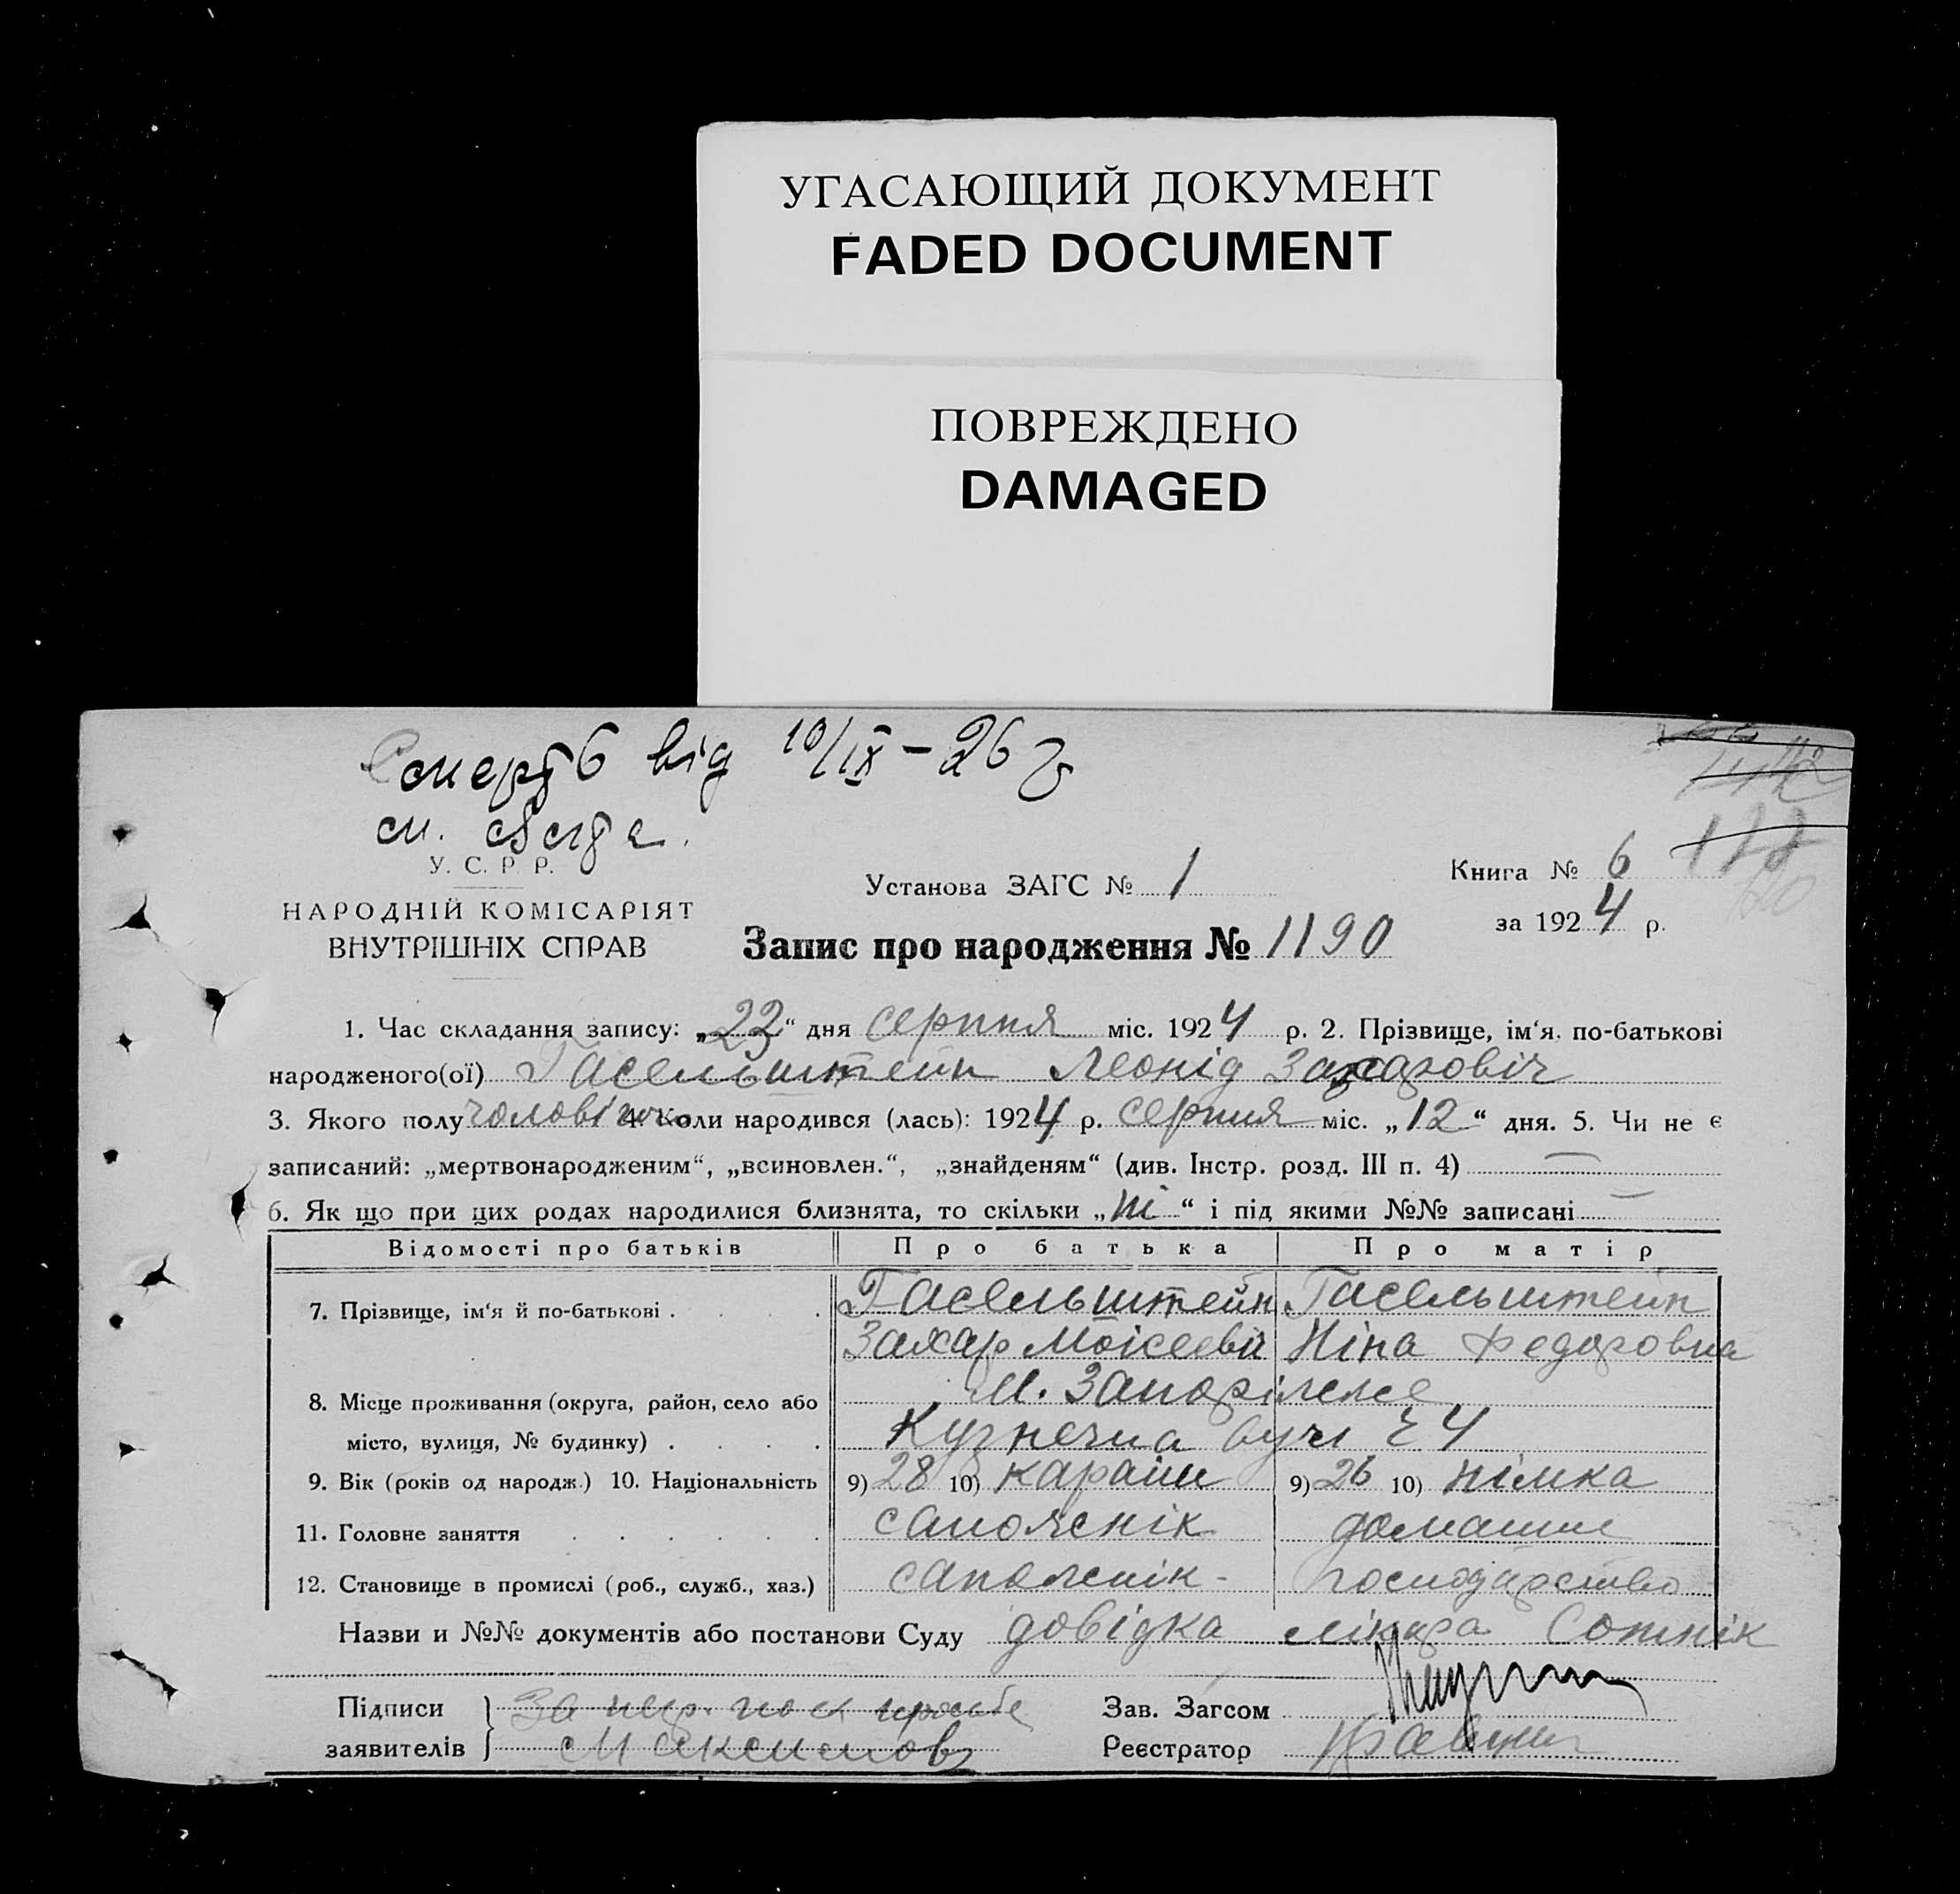 УГАСАЮЩИЙ ДОКУМЕНТ
FADED DOCUMENT
ПОВРЕЖДЕНО
DAMAGED
Смерть від 10/IX – 26 р
м.
У. С. Р. Р.
НАРОДНІЙ КОМІСАРІЯТ
ВНУТРІШНІХ СПРАВ
Установа ЗАГС № 1
Книга № 6
за 1924 р.
Запис про народження № 1190
1. Час складання запису: „22“ дня серпня міс. 1924 р. 2. Прізвище, ім‘я, по-батькові
народженого(ої) Гасельштейн Леонід Захаровіч
3. Якого полу чоловічого 4. Коли народився (лась): 1924 р. серпня міс. „12“ дня. 5. Чи не є
записаний: „мертвонародженим“, „всиновлен.“, „знайденям“ (див. Інстр. розд. III п. 4) —
6. Як що при цих родах народилися близнята, то скільки „ні“ і під якими №№ записані —
Відомості про батьків Про батька Про матір
7. Прізвище, ім‘я й по-батькові . Гасельштейн Гасельштейн
Захар Моісеевіч Ніна Федоровна
8. Місце проживання (округа, район, село або М. Запоріжже
місто, вулиця, № будинку) . Кузнечна вул ч 4
9. Вік (років од народж.) 10. Національність 9) 28 10) караїм 9) 26 10) німка
11. Головне заняття сапожнік домашне
12. Становище в промислі (роб., служб., хаз.) сапожнік - господарство
Назви и №№ документів або постанови Суду довідка лікаря Сотнік
Підписи За
заявителів Максимов
Зав. Загсом
Реєстратор